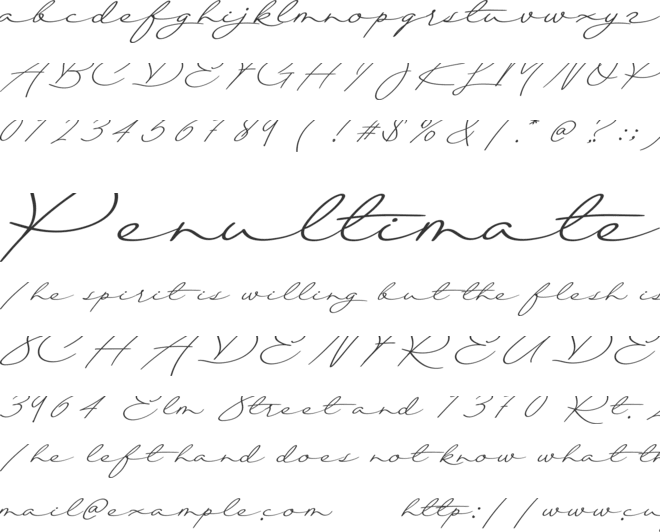 abcdefghijklmnopqrstuvwxyz
ABCDEFGHIJKLMNOP
0123456789 ( ! #$%& / . * @ ? : ; )
Penultimate
The spirit is willing but the flesh is
SCHADENFREUDE
3964 Elm Street and 1370 Rt. 2
The left hand does not know what th
mail@example.com http://www.cu